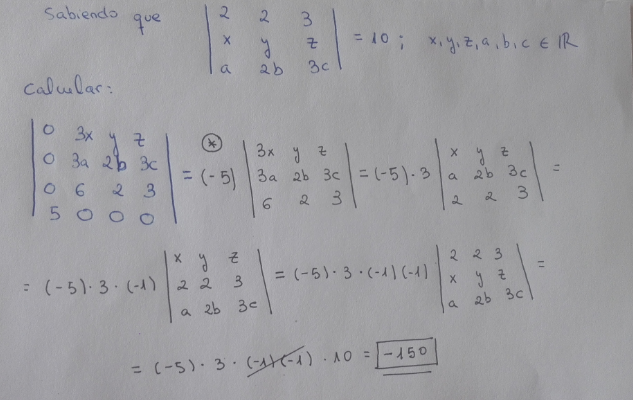 Sabiendo que | 2 2 3 |
| x y z | = 10 ; x, y, z, a, b, c ∈ ℝ
| a 2b 3c |
Calcular:
| 0 3x y z |
| 0 3a 2b 3c |
| 0 6 2 3 |
| 5 0 0 0 |
= (-5)
*
| 3x y z |
| 3a 2b 3c |
| 6 2 3 |
= (-5) · 3
| x y z |
| a 2b 3c |
| 2 2 3 |
=
= (-5) · 3 · (-1)
| x y z |
| 2 2 3 |
| a 2b 3c |
= (-5) · 3 · (-1) (-1)
| 2 2 3 |
| x y z |
| a 2b 3c |
=
= (-5) · 3 · (-1) (-1) · 10 = -150